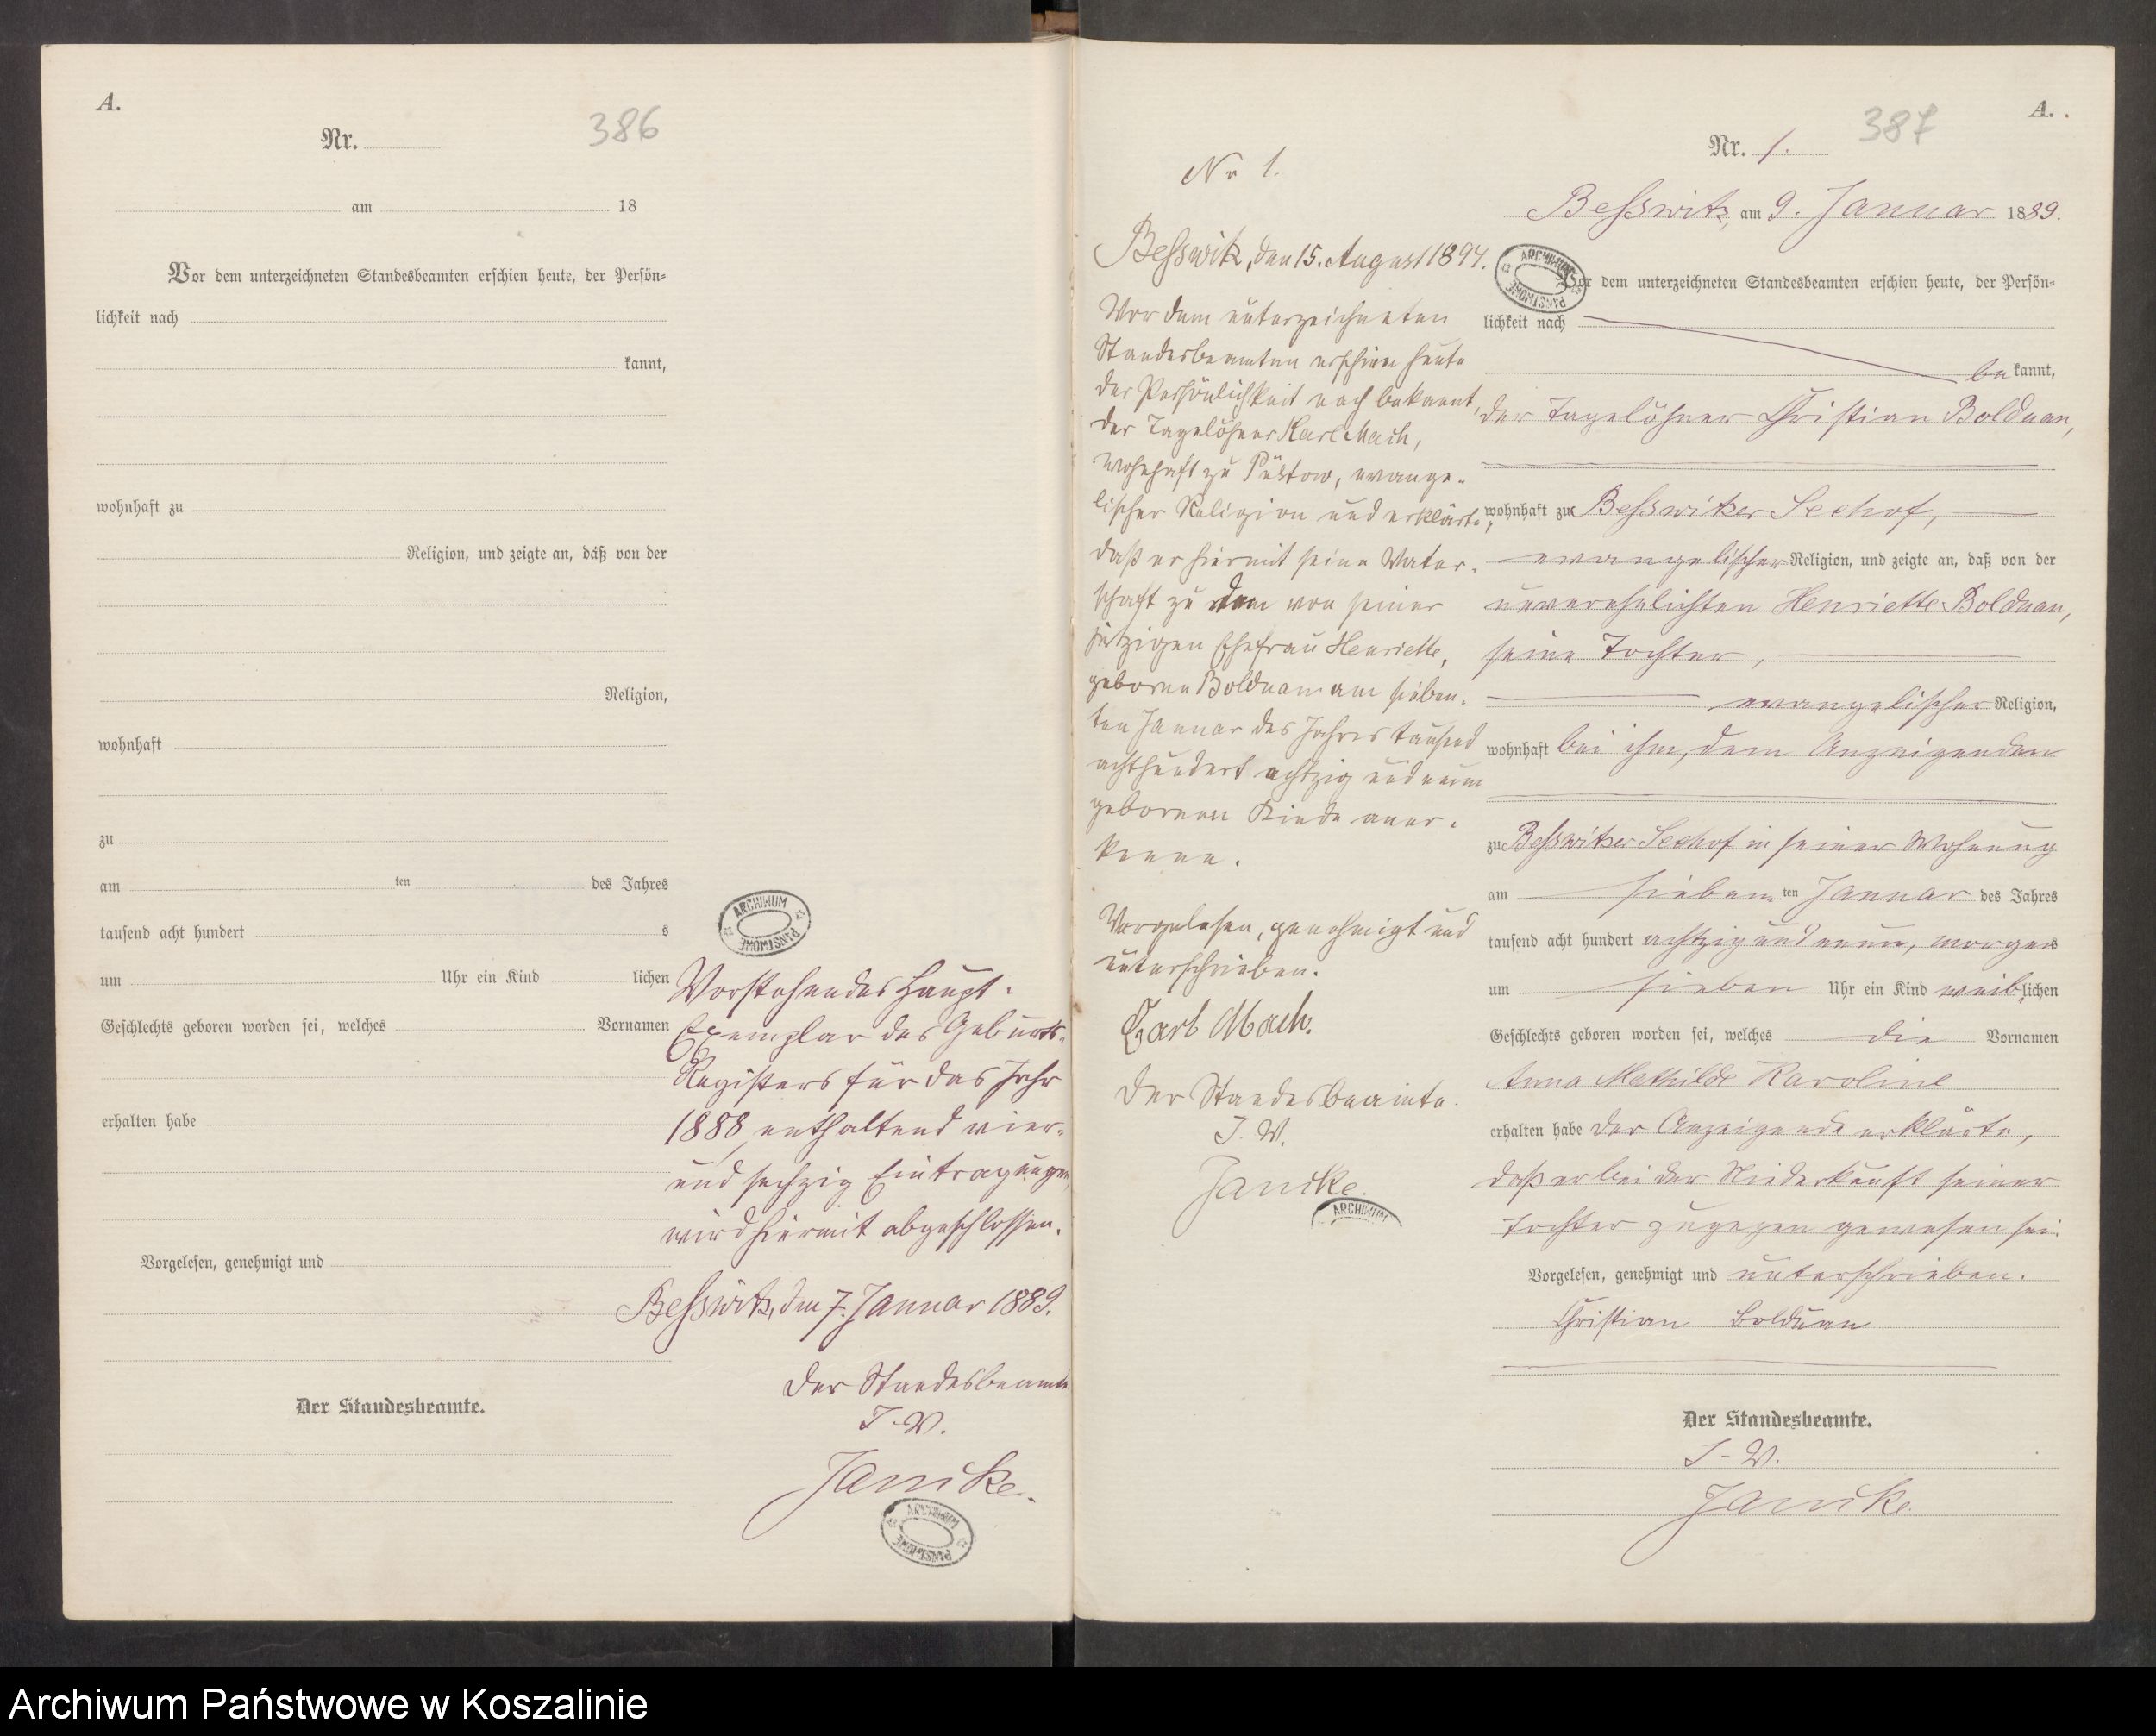 A.
386
Nr.
am 18
Vor dem unterzeichneten Standesbeamten erschien heute, der Persön-
lichkeit nach
kannt,
wohnhaft zu
Religion, und zeigte an, daß von der
Religion,
wohnhaft
zu
am ten des Jahres
tausend acht hundert s
um Uhr ein Kind lichen
Geschlechts geboren worden sei, welches Vornamen
erhalten habe
Vorgelesen, genehmigt und
Der Standesbeamte.
ARCHIWUM PAŃSTWOWE
Vorstehendes Haupt-
Exemplar des Geburts-
Registers für das Jahr
1888, enthaltend vier-
und sechzig Eintragungen,
wird hiermit abgeschlossen.
Beßwitz, den 7. Januar 1889.
Der Standesbeamte
I. V.
Janicke.
ARCHIWUM PAŃSTWOWE
No 1.
Beßwitz, den 15. August 1894.
Vor dem unterzeichneten
Standesbeamten erschien heute
der Persönlichkeit nach bekannt,
der Tagelöhner Karl Mach,
wohnhaft zu Püstow, evange-
lischer Religion und erklärte,
daß er hiermit seine Vater-
schaft zu dem von seiner
jetzigen Ehefrau Henriette,
geborene Bolduan am sieben-
ten Januar des Jahres tausend
achthundert achtzig und neun
geborenen Kinde aner-
kenne.
Vorgelesen, genehmigt und
unterschrieben.
Carl Mach.
Der Standesbeamte.
I. V.
Janicke.
ARCHIWUM
A.
387
Nr. 1.
Beßwitz, am 9. Januar 1889.
ARCHIWUM PAŃSTWOWE
Vor dem unterzeichneten Standesbeamten erschien heute, der Persön-
lichkeit nach
be kannt,
der Tagelöhner Christian Bolduan,
wohnhaft zu Beßwitzer Seehof,
evangelischer Religion, und zeigte an, daß von der
unverehelichten Henriette Bolduan,
seine Tochter,
evangelischer Religion,
wohnhaft bei ihm, dem Anzeigenden
zu Beßwitzer Seehof in seiner Wohnung
am sieben ten Januar des Jahres
tausend acht hundert achtzig und neun, morgens
um sieben Uhr ein Kind weiblichen
Geschlechts geboren worden sei, welches die Vornamen
Anna Mathilde Karoline
erhalten habe der Anzeigende erklärte,
daß er bei der Niederkunft seiner
Tochter zugegen gewesen sei.
Vorgelesen, genehmigt und unterschrieben.
Christian Bolduan
Der Standesbeamte.
I. V.
Janicke.
Archiwum Państwowe w Koszalinie